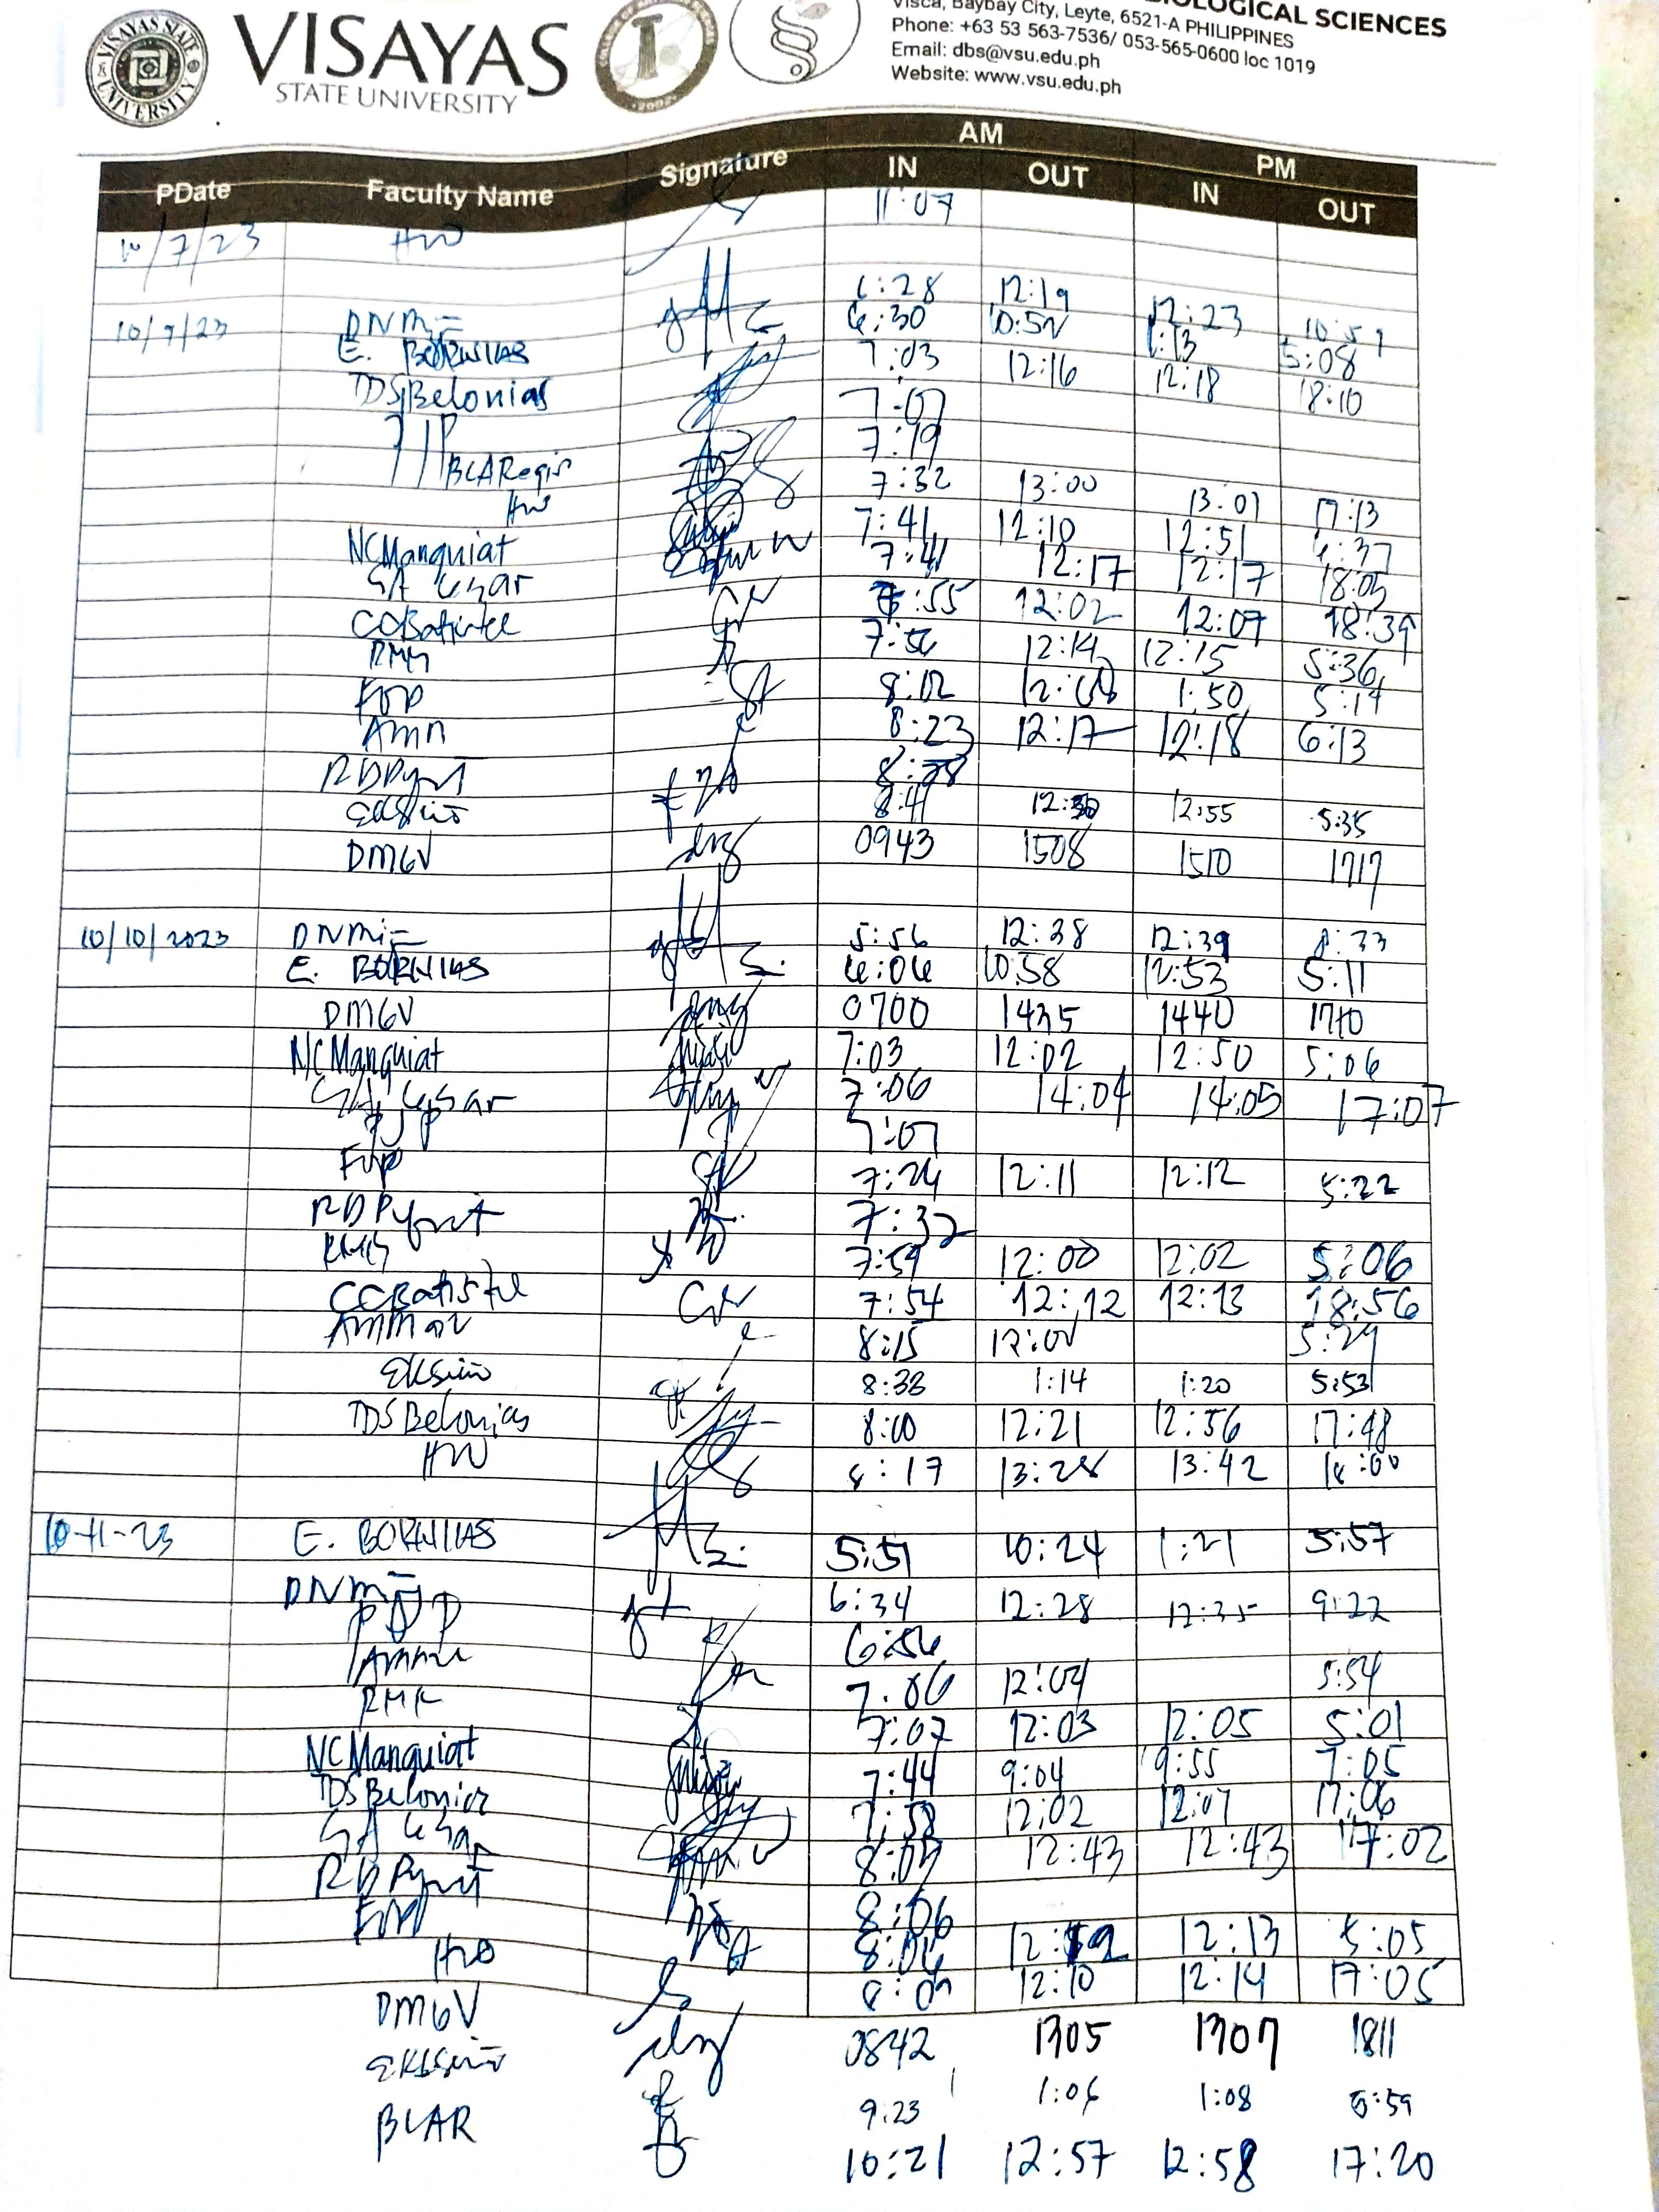 VISAYAS
STATE UNIVERSITY
VISAYAS STATE UNIVERSITY
BIOLOGICAL SCIENCES
Visca, Baybay City, Leyte, 6521-A PHILIPPINES
Phone: +63 53 563-7536/ 053-565-0600 loc 1019
Email: dbs@vsu.edu.ph
Website: www.vsu.edu.ph
AM PM
PDate Faculty Name Signature IN OUT IN OUT
10/7/23 HW 11:07
10/9/23 DNM 6:28 12:19 12:23 10:59
E. BORNILLAS 6:30 10:52 1:13 5:08
TDSBelonias 7:03 12:16 12:18 18:10
PJP 7:07
BLARegis 7:19
HW 7:32 13:00 13:01 17:13
NCManguiat 7:41 12:10 12:51 6:37
SA Cesar 7:41 12:17 12:17 18:05
CCBatistel 7:55 12:02 12:07 18:39
RMG 7:56 12:14 12:15 5:36
FVP 8:02 12:08 1:50 5:14
AMM 8:23 12:17 12:18 6:13
RDPygot 8:28
EKSino 8:41 12:30 12:55 5:35
DMGV 0943 1508 1510 1717
10/10/2023 DNM 5:56 12:38 12:39 8:33
E. BORNILLAS 6:06 10:58 12:53 5:11
DMGV 0700 1435 1440 1710
NCManguiat 7:03 12:02 12:50 5:06
SA Cesar 7:06 14:04 14:05 17:07
PJP 7:07
FVP 7:24 12:11 12:12 5:22
RDPygot 7:32
RMG 7:59 12:00 12:02 5:06
CCBatistel 7:54 12:12 12:13 18:56
AMM 8:15 12:01 5:29
EKSino 8:33 1:14 1:20 5:53
TDSBelonias 8:00 12:21 12:56 17:48
HW 8:17 13:28 13:42 18:00
10-11-23 E. BORNILLAS 5:51 10:24 1:21 5:57
DNM 6:34 12:28 12:35 9:22
PJP 6:56
AMM 7:06 12:04 5:54
RMG 7:07 12:03 12:05 5:01
NCManguiat 7:44 9:04 9:55 7:05
TDSBelonias 7:58 12:02 12:07 17:06
SA Cesar 8:05 12:43 12:43 17:02
RDPygot 8:06
FVP 8:06 12:12 12:13 5:05
HW 8:09 12:10 12:14 17:05
DMGV 0842 1305 1307 1811
EKSino 9:23 1:06 1:08 5:59
BLAR 10:21 12:57 12:58 17:20